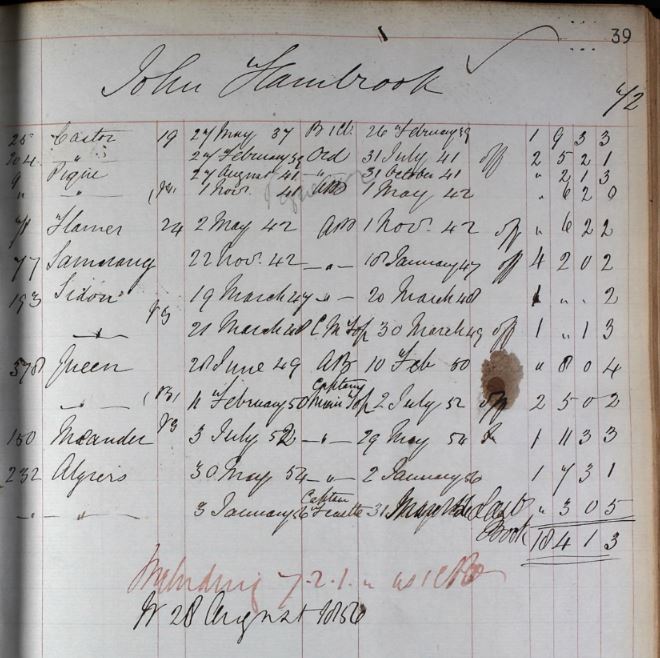 39
John Hambrook
4/2
25 Castor 19 27 May 37 B 1 Cl. 26 February 39 1 9 3 3
204 " " 27 February 39 Ord 31 July 41 off 2 5 2 1
9 Pique 27 August 41 " 31 October 41 " 2 1 3
" " 1 Nov. 41 AB 1 May 42 " 6 2 0
Harrier 24 2 May 42 AB 1 Nov. 42 off " 6 2 2
77 Samarang 22 Nov. 42 " 18 January 47 off 4 2 0 2
193 Sidon 19 March 47 " 20 March 48 1 " " 2
21 March 48 C M Top 30 March 49 off 1 " 1 3
378 Queen 28 June 49 AB 10 Feb 50 " 8 0 4
" 11 February 50 Captn Top 2 July 52 off 2 5 0 2
150 Meander 3 July 52 " 29 May 54 1 11 3 3
232 Algiers 30 May 54 " 2 January 56 1 7 3 1
" " 3 January 56 Captain 31 " 3 0 5
Book 18 4 1 3
Including 7.2.1. "
28 August 1856